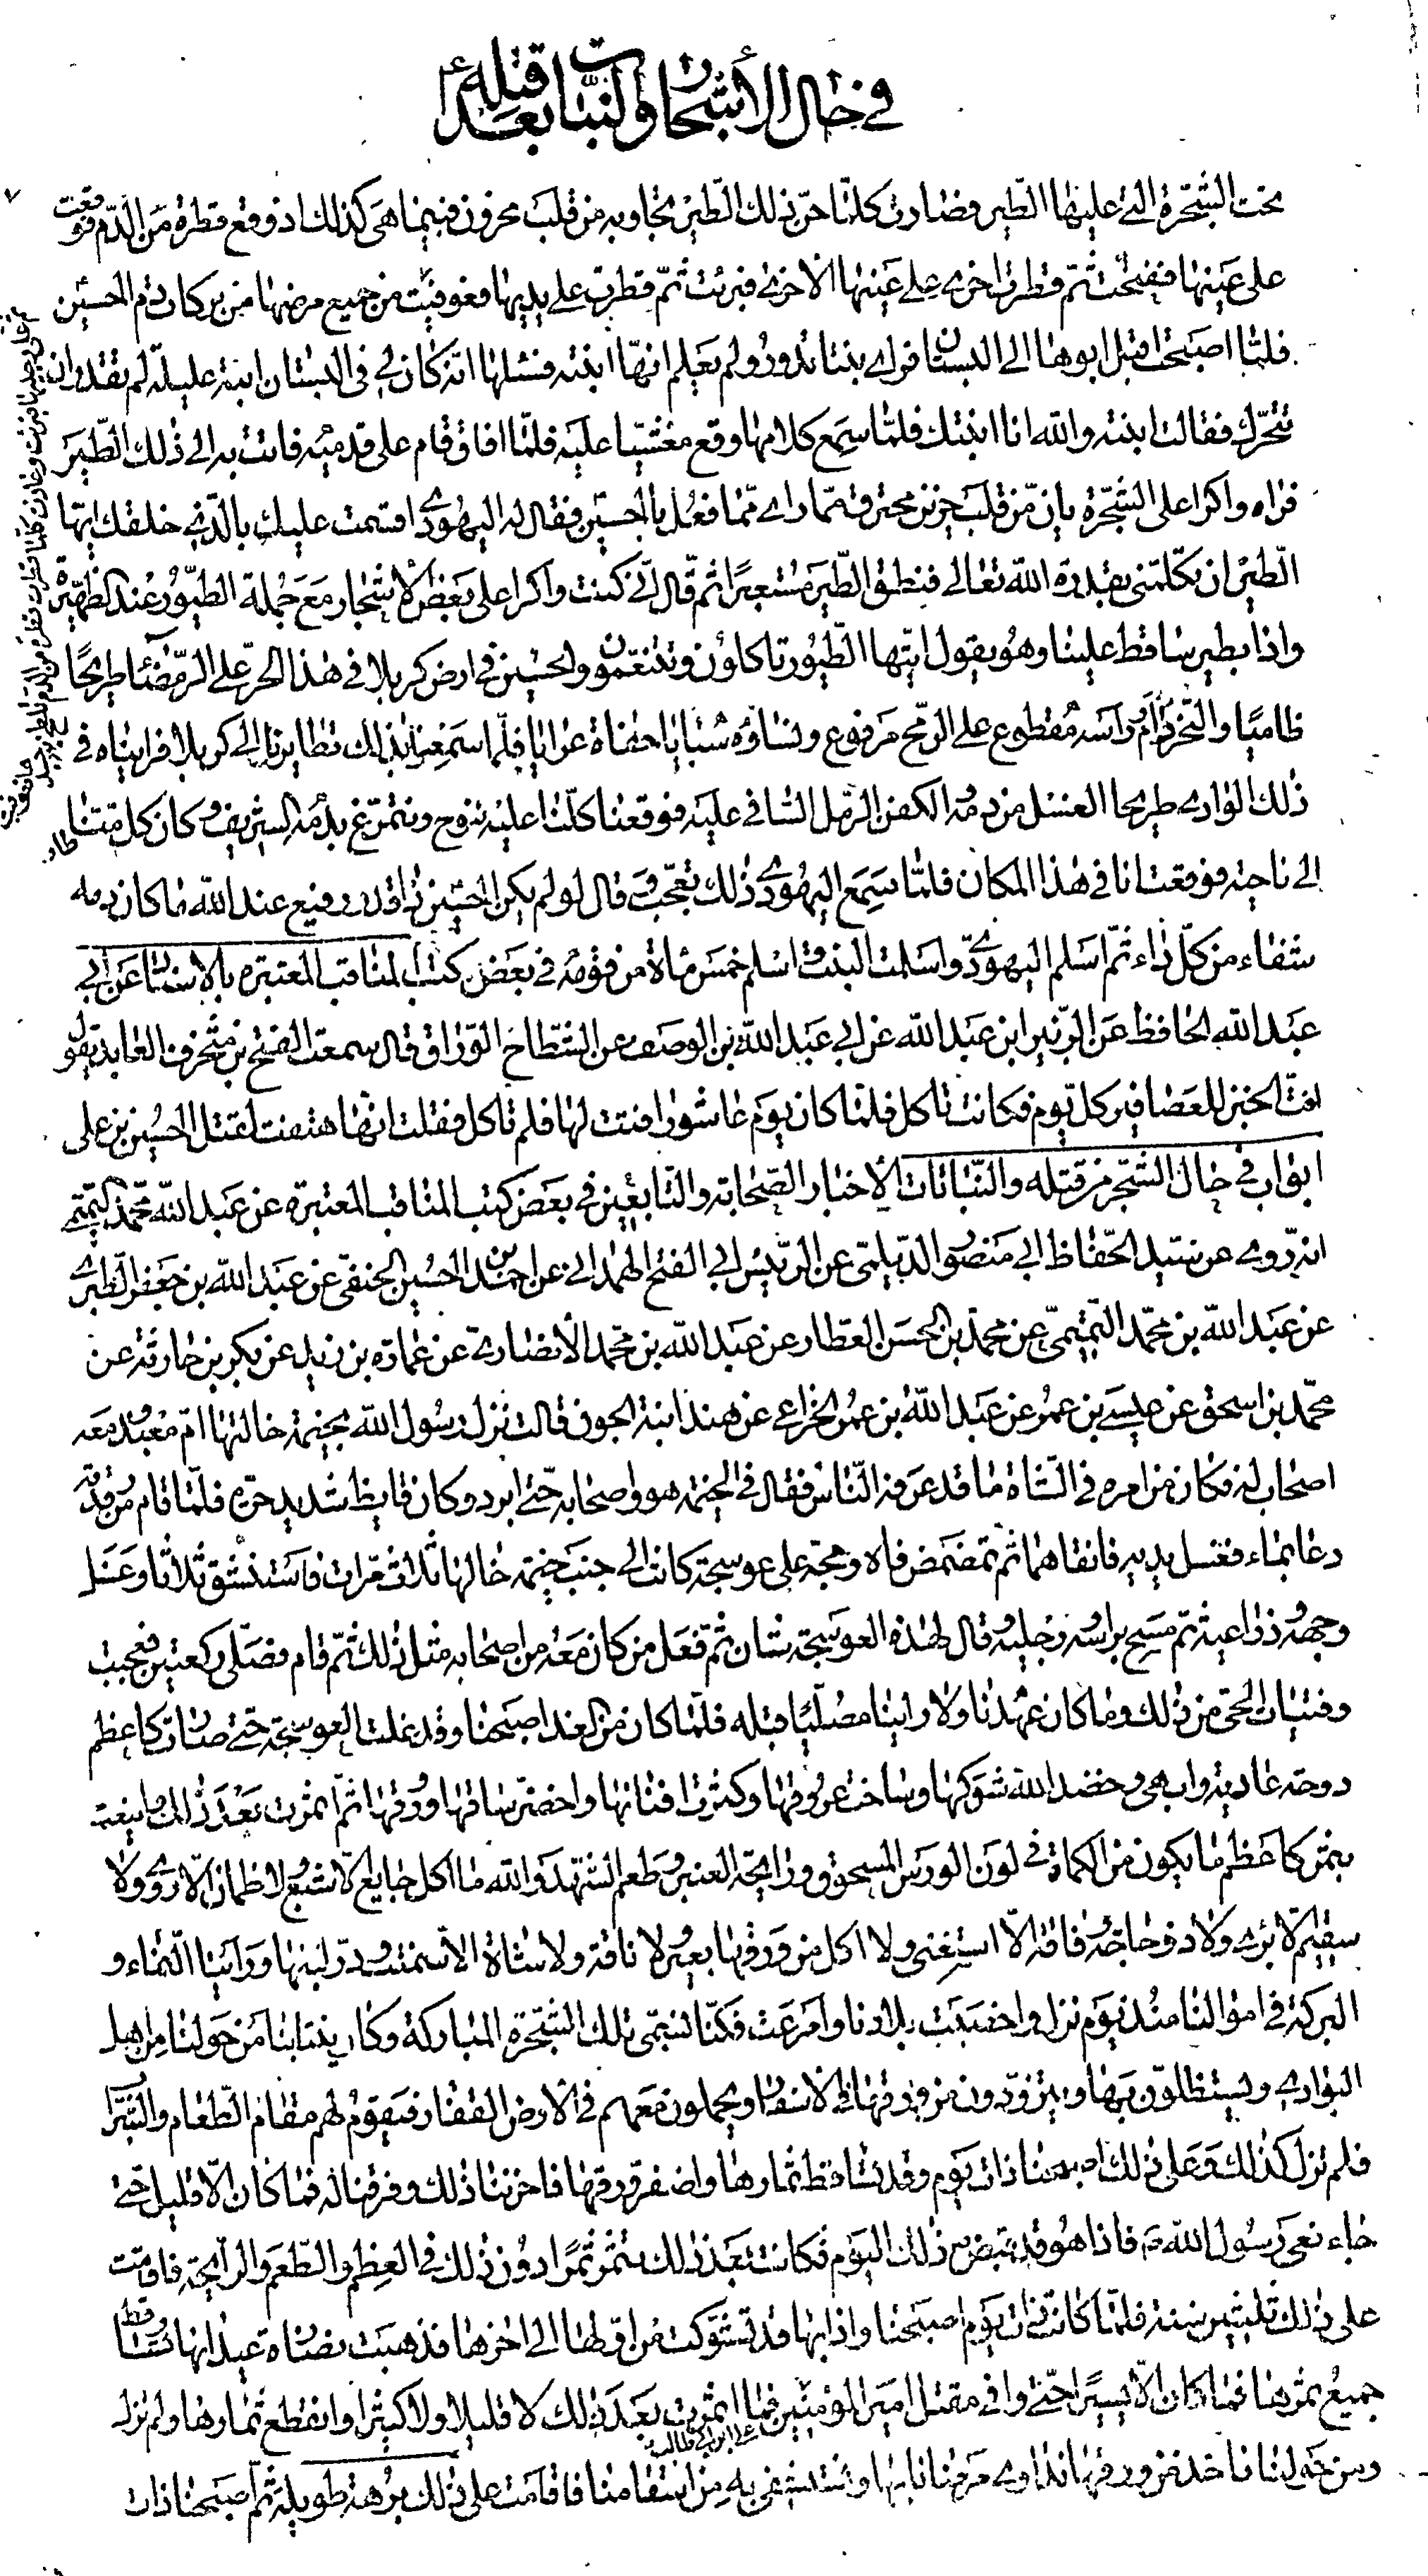 في حال الأشجار والنبات بعد قتله ع
تحت الشجرة التي عليها الطير فصارت كلما حن ذلك الطير تجاوبه من قلب محزون فبينما هي كذلك اذ وقع قطرة من الدم فوقعت
على عينها ففتحت ثم قطرت اخرى على عينها الاخرى فبرئت ثم قطرت على يديها فعوفيت من جميع مرضها من بركات دم الحسين
فلما اصبحت اقبل ابوها الى البستان فراى بنتا تدور ولم يعلم انها ابنته فسئلها انه كان لي في البستان ابنة عليلة لم تقدر ان
تتحرك فقالت ابنته والله انا ابنتك فلما سمع كلامها وقع مغشيا عليه فلما افاق قام على قدميه فاتت به الى ذلك الطير
فراه واكرا على الشجرة يان من قلب حزين محترق مما راى مما فعل بالحسين فقال له اليهودي اقسمت عليك بالذي خلقك ايها
الطير ان تكلمني بقدرة الله تعالى فنطق الطير مستعبرا ثم قال اني كنت واكرا على بعض الأشجار مع جملة الطيور عند الظهيرة
واذا بطير ساقط علينا وهو يقول ايتها الطيور تاكلون وتتنعمون والحسين في ارض كربلا في هذا الحر على الرمضاء طريحا
ظاميا والنحر دام وراسه مقطوع على الرمح مرفوع ونساؤه سبايا حفاة عرايا فلما سمعن بذلك تطايرنا الى كربلا فرايناه في
ذلك الوادي طريحا الغسل من دمه والكفن الرمل السافي عليه فوقعنا كلنا عليه ننوح ونتمرغ بدمه الشريف وكان كل منا طار
الى ناحية فوقعت انا في هذا المكان فلما سمع اليهودي ذلك تعجب وقال لو لم يكن الحسين ذا قدر رفيع عند الله ما كان دمه
شفاء من كل داء ثم اسلم اليهودي واسلمت البنت واسلم خمس مأة من قومه في بعض كتب المناقب المعتبرة بالاسناد عن ابي
عبد الله الحافظ عن الزبير ابن عبد الله عن ابي عبد الله بن الوصف عن الشطاح الوراق قال سمعت الفتح بن شخرف العابد يقول
افت الخبز للعصافير كل يوم فكانت تاكل فلما كان يوم عاشورا فتت لها فلم تاكل فقلت انها هتفت لقتل الحسين بن علي
ابواب في حال الشجر من قتله والنباتات الأخبار الصحابة والتابعين في بعض كتب المناقب المعتبرة عن عبد الله محمد التميمي
انه روي عن سيد الحفاظ ابي منصور الديلمي عن الرئيس ابي الفتح الهمداني عن احمد بن الحسين الحنفي عن عبد الله بن جعفر الطبري
عن عبد الله بن محمد التميمي عن محمد بن الحسن العطار عن عبد الله بن محمد الأنصاري عن عمارة بن زيد عن بكر بن حارثة عن
محمد بن اسحق عن عيسى بن عمر عن عبد الله بن عمر الخزاعي عن هند ابنة الجون قالت نزل رسول الله بخيمة خالتها ام معبد ومعه
اصحاب له فكان من امره في الشاة ما قد عرفه الناس فقال في الخيمة هو واصحابه حتى ابرد وكان قايظ شديد حره فلما قام من رقدته
دعا بماء فغسل يديه فانقاهما ثم تمضمض فاه ومجه على عوسجة كانت الى جنب خيمة خالتها ثلاث مرات فاستنشق ثلاثا وغسل
وجهه وذراعيه ثم مسح براسه ورجليه وقال لهذه العوسجة شان ثم فعل من كان معه من اصحابه مثل ذلك ثم قام فصلى ركعتين فعجبت
وفتيات الحي من ذلك وما كان عهدنا ولا راينا مصليا قبله فلما كان من الغد اصبحنا وقد علت العوسجة حتى صارت كاعظم
دوحة عادية وابهى وخضد الله شوكها وساخت عروقها وكثرت افنانها واخضر ساقها وورقها ثم اثمرت بعد ذلك واينعت
بثمر كاعظم ما يكون من الكماة في لون الورس المسحوق ورايحة العنبر وطعم الشهد والله ما اكل جايع الا شبع ولا ظمان الا روي ولا
سقيم الا برئ ولا ذو حاجة وفاقة الا استغنى ولا اكل من ورقها بعير ولا ناقة ولا شاة الا سمنت ودر لبنها وراينا النماء و
البركة في اموالنا منذ يوم نزل واخصبت بلادنا وامرعت فكنا نسمي تلك الشجرة المباركة وكان ينتابنا من حولنا من اهل
البوادي يستظلون بها ويتزودون من ورقها في الاسفار ويحملون معهم في الأرض القفار فيقوم لهم مقام الطعام والشراب
فلم تزل كذلك وعلى ذلك اصبحنا ذات يوم وقد تساقط ثمارها واصفر ورقها فاحزننا ذلك وفرقنا له فما كان الا قليل حتى
جاء نعي رسول الله ص فاذا هو قد قبض ذلك اليوم فكانت بعد ذلك تثمر ثمرا دون ذلك في العظم والطعم والرايحة فاقامت
على ذلك ثلثين سنة فلما كانت ذات يوم اصبحنا واذا بها قد تشوكت من اولها الى اخرها فذهبت نضارة عيدانها وتساقط
جميع ثمرها فما كان الا يسيرا حتى وافى مقتل امير المؤمنين علي ابن ابي طالب فما اثمرت بعد ذلك لا قليلا ولا كثيرا وانقطع ثمارها ولم نزل
ومن حولنا ناخذ من ورقها نداوي مرضانا بها ونستشفي به من اسقامنا فاقامت على ذلك برهة طويلة ثم اصبحنا ذات